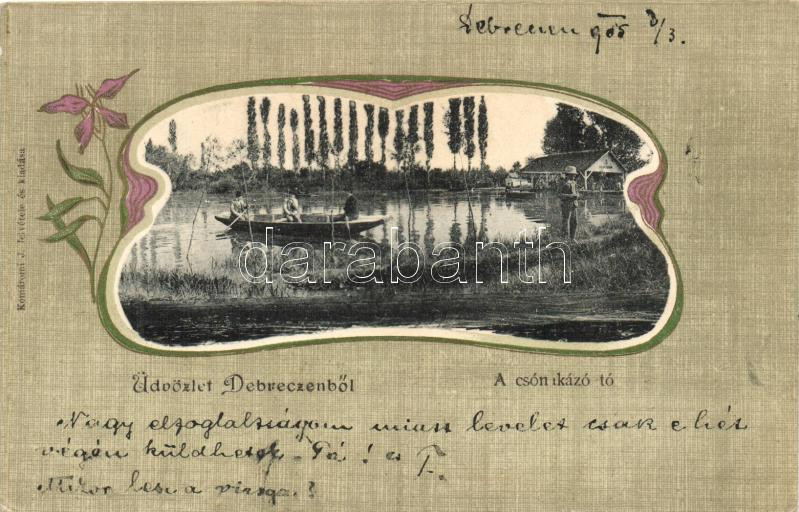 Debrecen 905 8/3.
Komáromi J. felvétele és kiadása
darabanth
Üdvözlet Debreczenből
A csónakázó tó
Nagy elfoglaltságom miatt levelet csak e hét
végén küldhetek. Pá! és T.
Mikor lesz a vizsga?